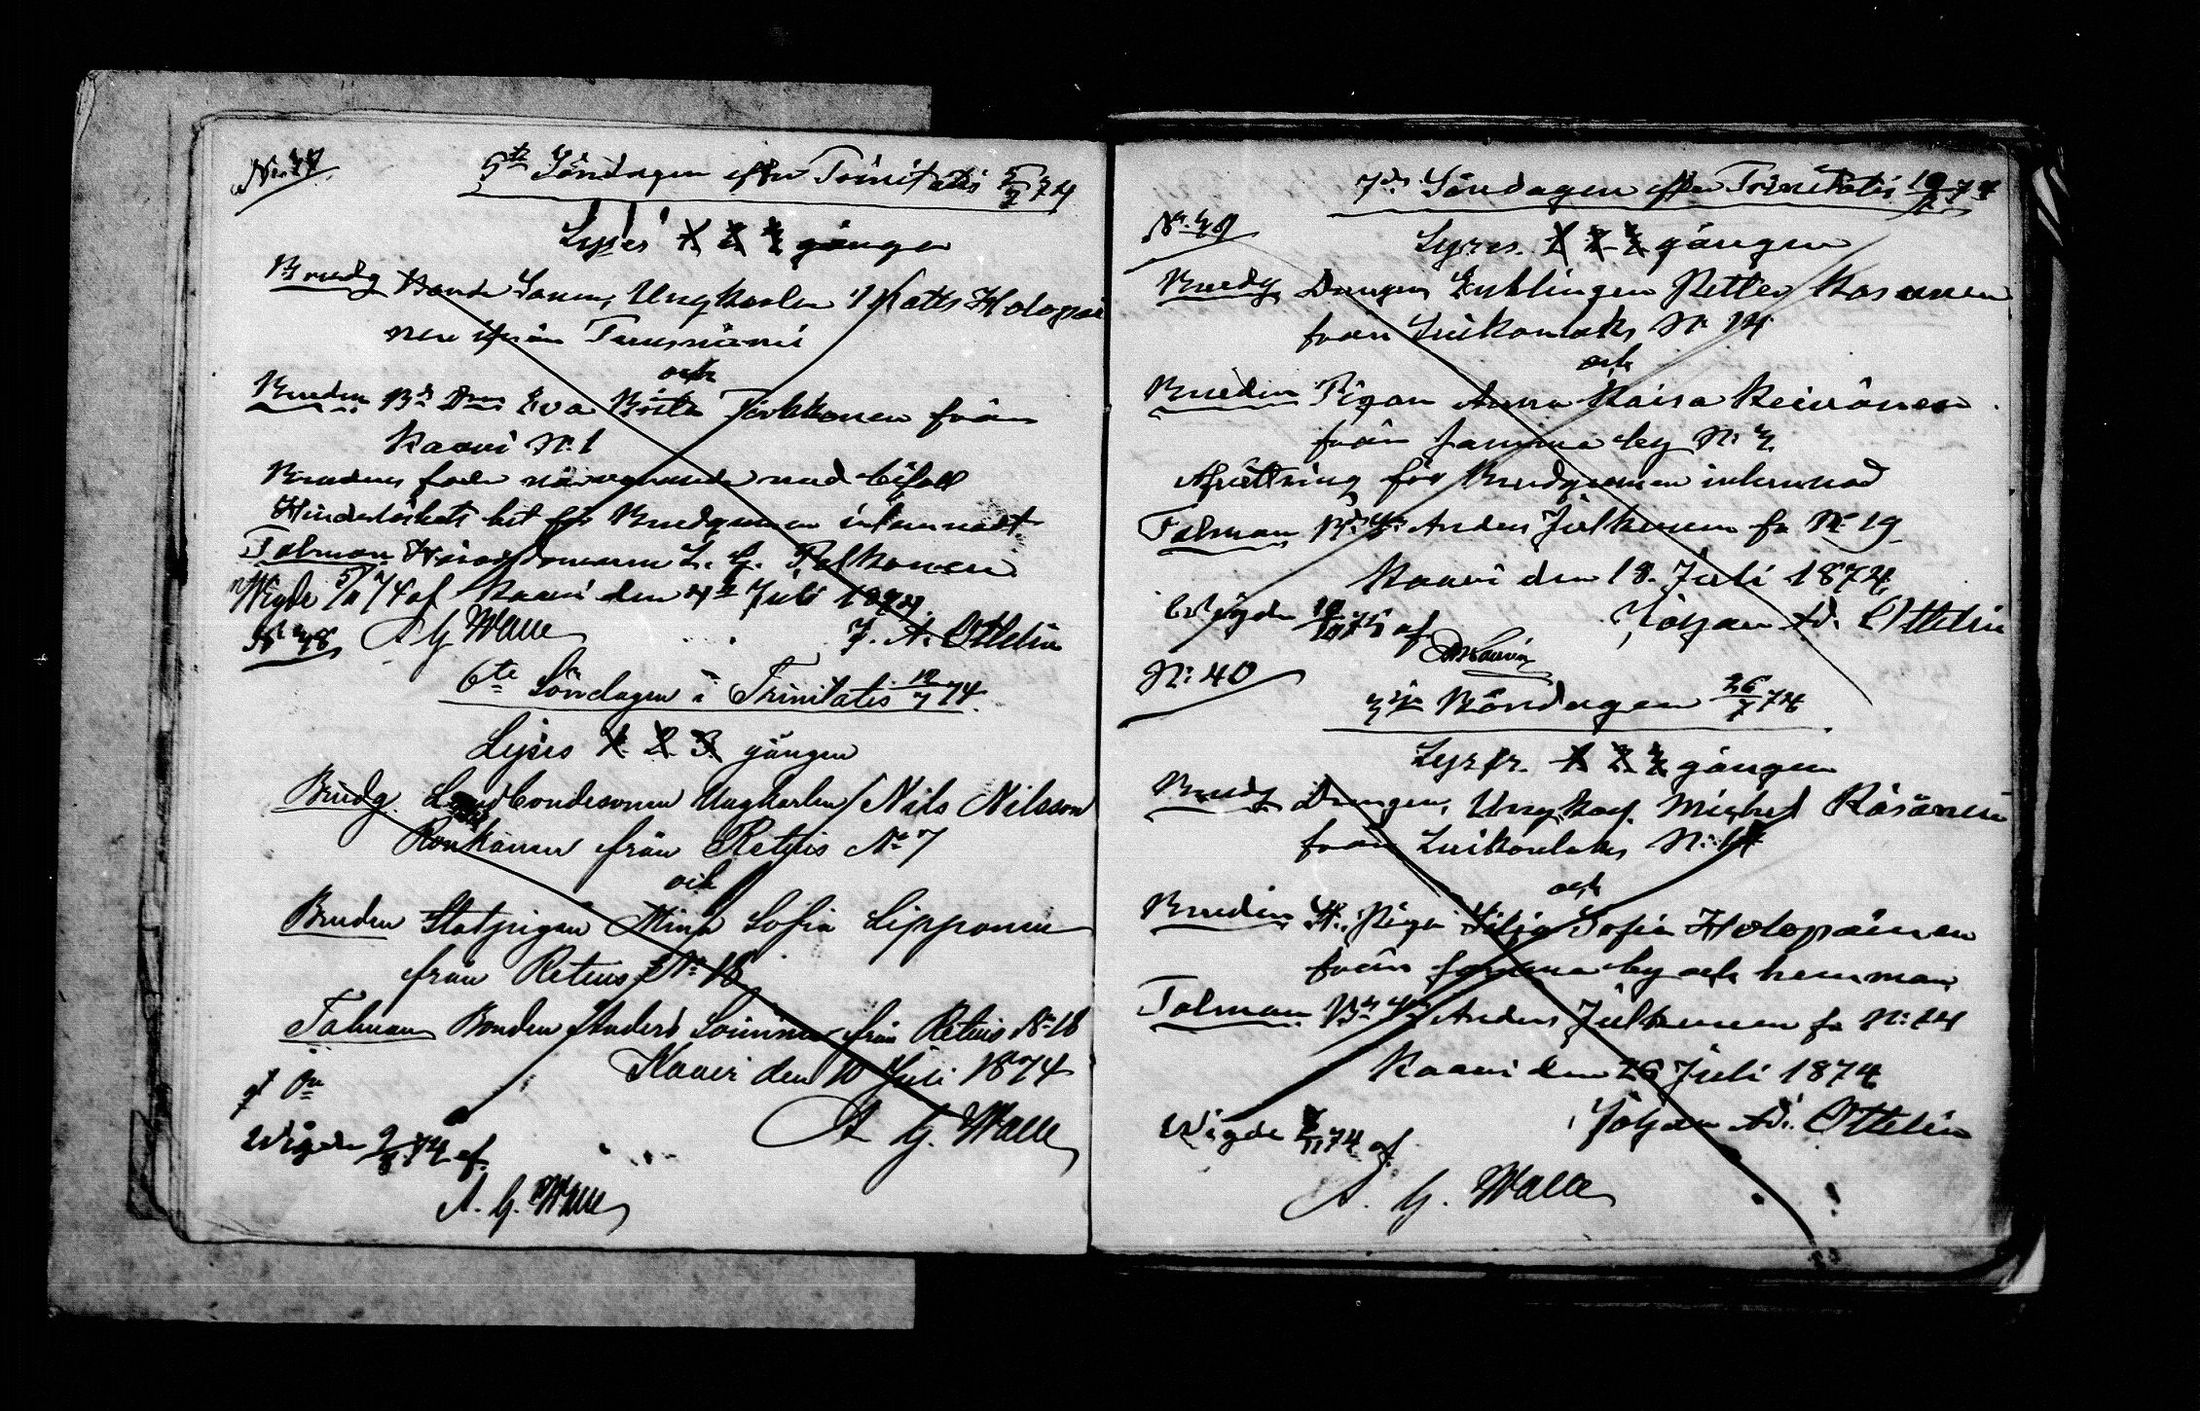 No 37
5te Söndagen efter Trinitatis 5/7 74
Lyses 1 2 3 gången
Brudg Bonde Sonen, Ungkarlen Matts Holopai
nen ifrån Tuusniemi
och
Bruden Bd Don Eva Brita Jerkkonen från
Kaavi No 1
Brudens fader närvarande med bifall
Hinderlöshets bet för Brudgumen inlemnadt.
Talman Häradsdomaren L. G. Pelkonen
Wigde 5/11 74 af Kaavi den 4de Juli 1874.
A G Walle J. A. Ottelin
No 38
6te Söndagen i Trinitatis 12/7 74
Lyses 1. 2. 3. gången
Brudg. Landbondesonen Ungkarlen Nils Nilsson
Ronkanen från Retuis No 7
och
Bruden Statpigan Mina Sofia Lipponen
från Retuis No 18
Talman Bonden Anders Soininen från Retuis No 18
Kaavi den 10 Juli 1874
A G. Walle
Wigde 2/8 74 af
A. G. Walle
7de Söndagen efter Trinitatis 19/7 74
No 39
Lyses. 1 2 3 gången
Brudg Drengen Enklingen Petter Kosonen
från Luikonlaks No 14
och
Bruden Pigan Anna Kaisa Keinänen
från samma by No 3
Afvittring för Brudgumen inlemnad
Talman Bd Sn Anders Julkunen fr No 19
Kaavi den 18. Juli 1874
Wigde 19/10 74 af Johan Ad. Ottelin
No 40
Böndagen 26/7 74
Lyses. 1 2 3 gången
Brudg Drengen, Ungkarl. Michel Räsänen
från Luikonlaks No 14
och
Bruden H. Piga Silja Sofia Holopainen
från samma by och hemman
Talman Bd Sn Anders Julkunen fr No 24
Kaavi den 26 Juli 1874
Johan Ad. Ottelin
Wigde 11 74 af
A. G. Walle